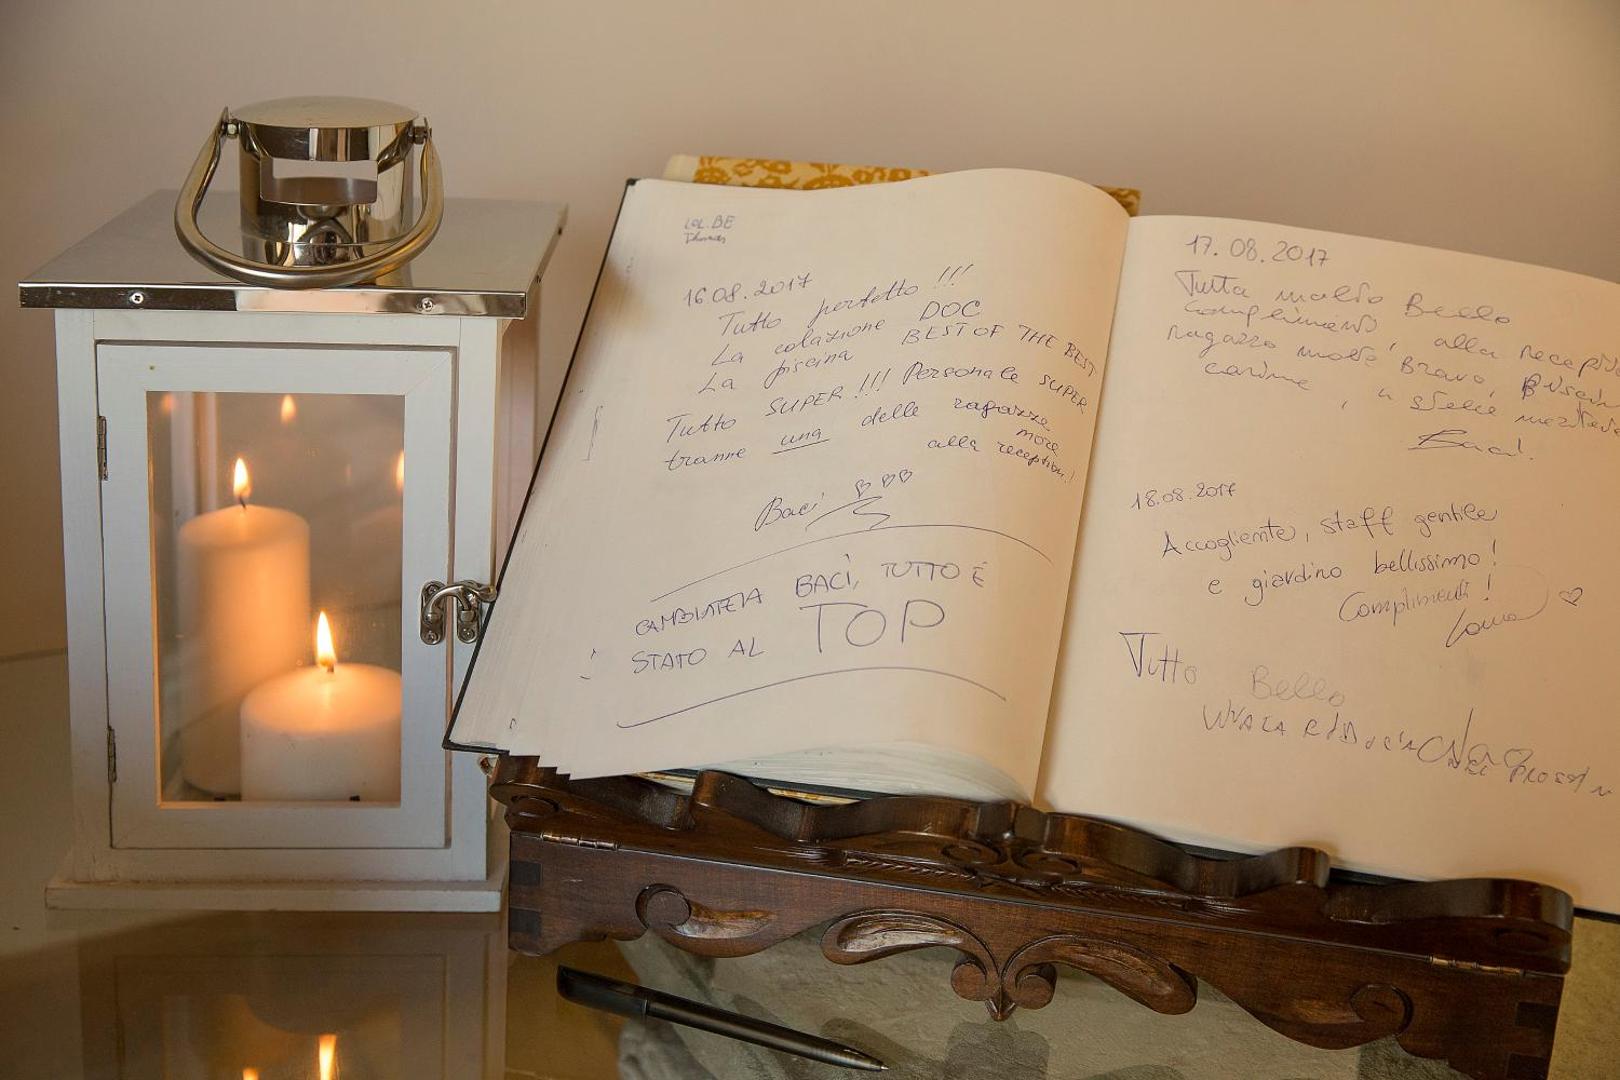 LOL.BE
Thomas
16.08.2017
Tutto perfetto !!!
La colazione DOC
La piscina BEST OF THE BEST
Tutto SUPER!!! Personale SUPER
tranne una delle ragazze
more
alla reception!
Baci
BACI, TUTTO È
STATO AL TOP
17.08.2017
Tutto molto Bello
complimenti, alla
ragazzo molto Bravo,
carine, 
Baci!
18.08.2017
Accogliente, staff gentile
e giardino bellissimo!
Complimenti!
Tutto Bello